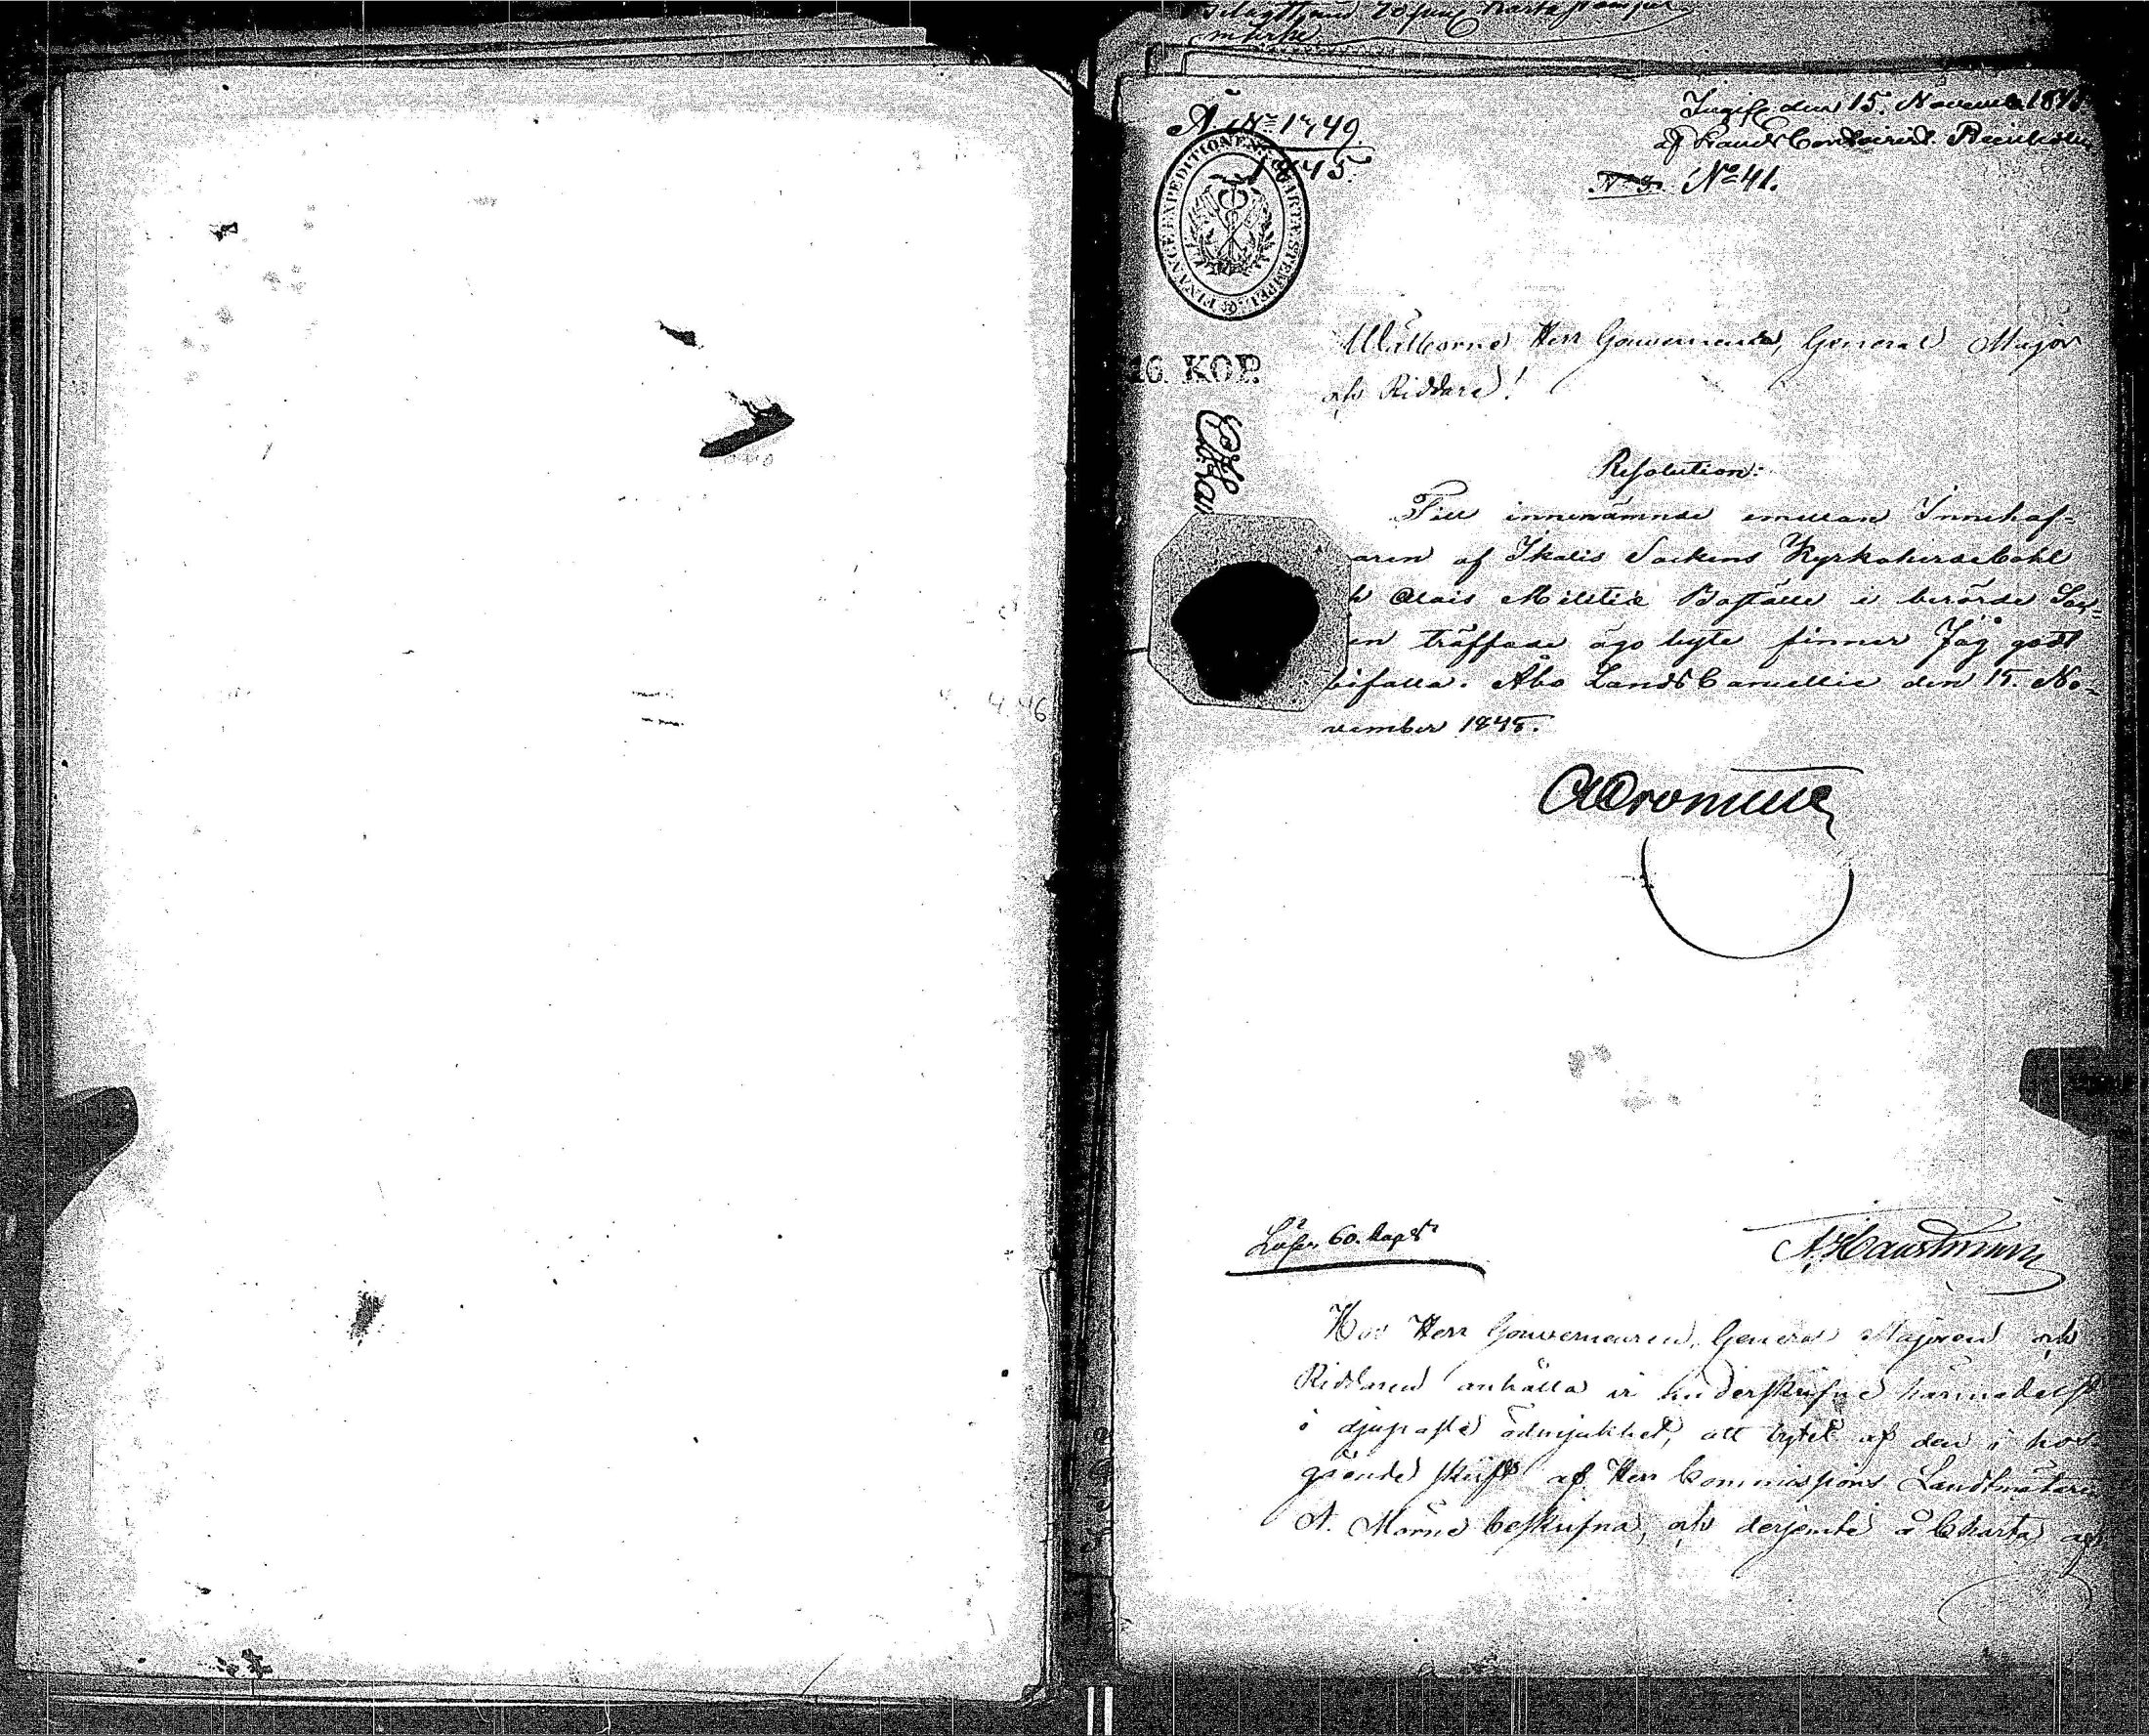 märke
Ingif. den 15. November 1845.
af Lands Contoirist
A No 1749
1845.
No 41.
FINANCE EXPEDITIONENS CHARTÆ STEMPEL
16. KOP.
Wälborne Herr Gouverneur, General Major
och Riddare!
Resolution:
Till innenämnde emellan Innehaf-
aren af Ikalis Sockens Kyrkoherdebohl
h Alais Militie Boställe i berörde Soc-
en träffade ägo byte finner Jag godt
bifalla. Åbo Lands Cancellie den 15. No-
vember 1845.
Lösen 60. kop S
Hos Herr Gouverneuren, General Majoren och
Riddaren anhålla vi underskrifne härmedelst
i djupaste ödmjukhet, att bytet af den i hos-
gående skrift af Herr Commissions Landtmätaren
A. Mörne beskrifna, och derjemte å Charta